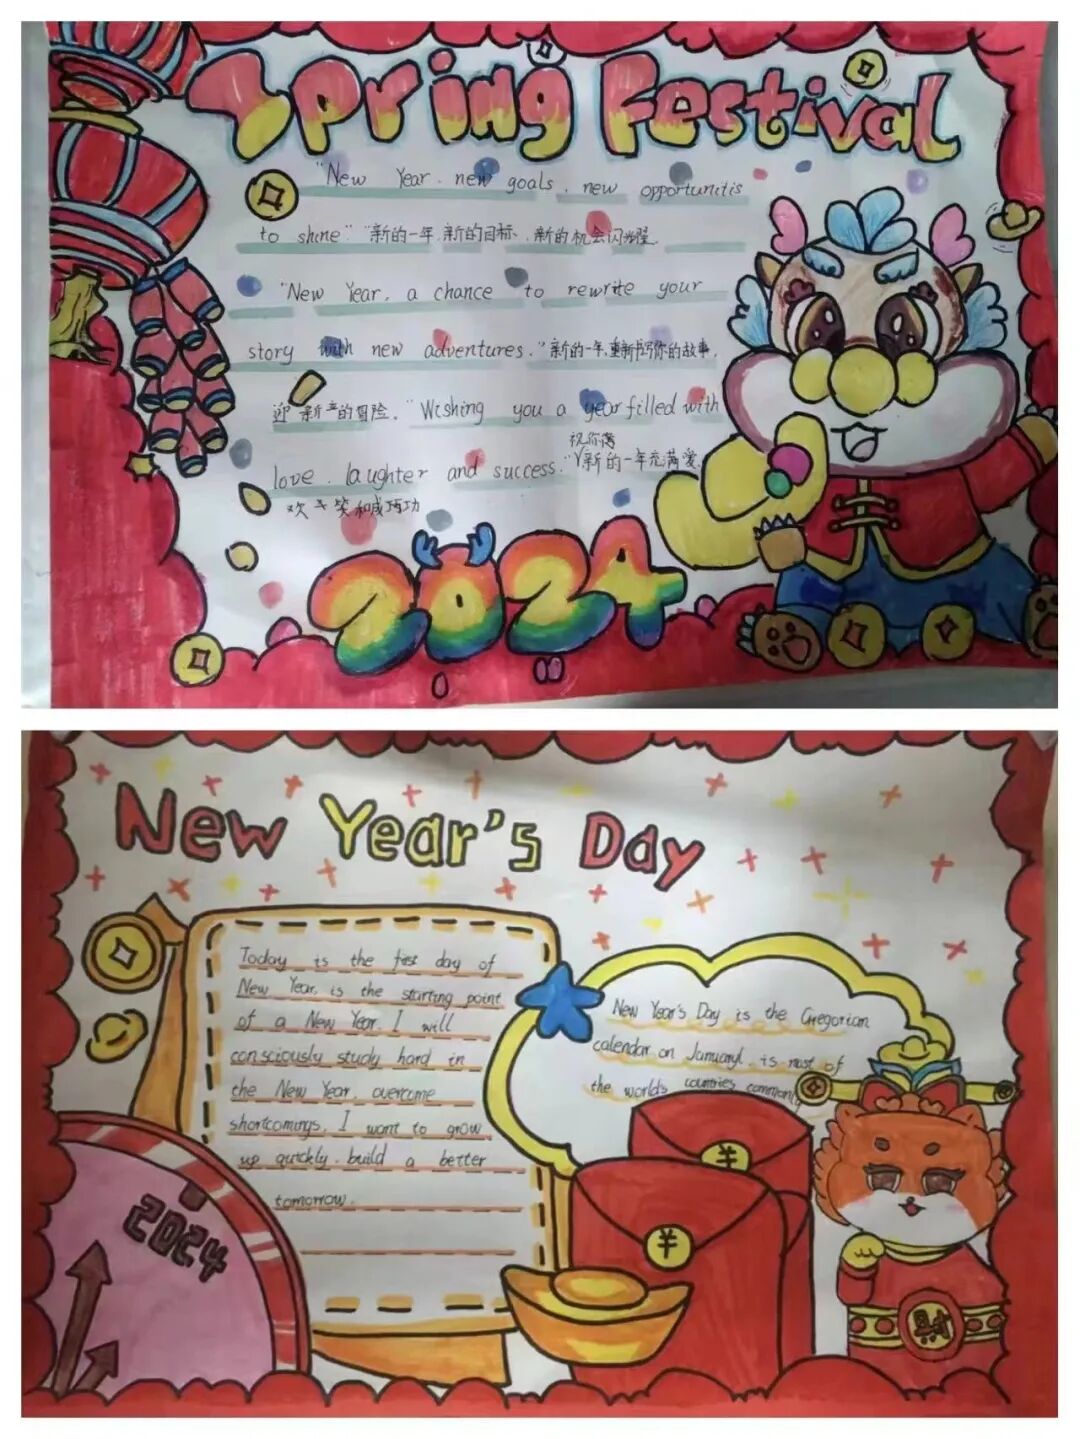 Spring Festival
"New Year. new goals. new opportunitis
to shine" "新的一年.新的目标.新的机会闪耀.
"New Year, a chance to rewrite your
story with new adventures." "新的一年,重新书写你的故事,
迎新的冒险." "Wishing you a year filled with
love. laughter and success." "祝你新的一年充满爱.
欢笑和成功
2024
New Year's Day
Today is the first day of
New Year, is the starting point
of a New Year. I will
consciously study hard in
the New Year, overcome
shortcomings. I want to grow
up quickly. build a better
tomorrow.
New Year's Day is the Gregorian
calendar on January1. is most of
the world's countries commonly
2024
¥
¥
財